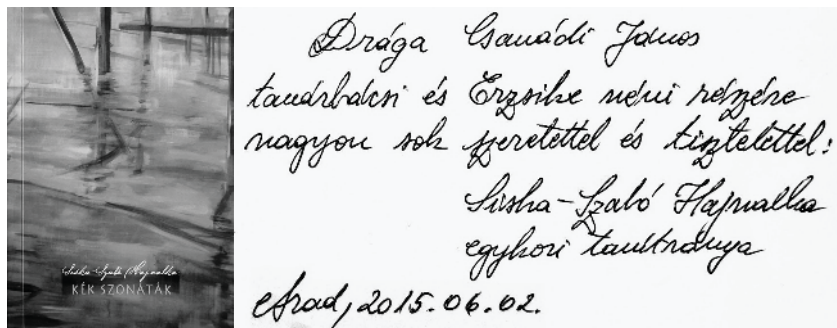 Siska-Szabó Hajnalka
KÉK SZONÁTÁK
Drága Csanádi János
tanárbácsi és Erzsike néni részére
nagyon sok szeretettel és tisztelettel:
Siska-Szabó Hajnalka
egykori tanítványa
Arad, 2015.06.02.